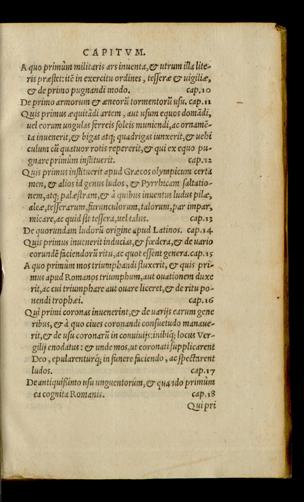 CAPITVM.
A quo primùm militaris ars inuenta, & utrum illa lite-
ris præstet: itē in exercitu ordines, tesseræ & uigiliæ,
& de primo pugnandi modo. cap.10
De primo armorum & æneorū tormentorū usu. cap.11
Quis primus æquitādi artem, aut usum equos domādi,
uel eorum ungulas ferreis soleis muniendi, ac ornamē-
ta inuenerit, & bigas atq; quadrigas iunxerit, & uehi
culum cū quatuor rotis repererit, & qui ex equo pu-
gnare primùm instituerit. cap.12
Quis primus instituerit apud Græcos olympicum certa
men, & alios id genus ludos, & Pyrrhicam saltatio-
nem, atq; palæstram, & à quibus inuentus ludus pilæ,
aleæ, tesserarum, scirunculorum, talorum, par impar,
micare, ac quid sit tessera, uel talus. cap.13
De quorundam ludorū origine apud Latinos. cap.14
Quis primùm inuenerit inducias, & fœdera, & de uario
eorundē faciendorū ritu, ac quot essent genera. cap.15
A quo primùm mos triumphandi fluxerit, & quis pri-
mus apud Romanos triumphum, aut ouationem duxe
rit, ac cui triumphare aut ouare liceret, & de ritu po-
nendi trophæi. cap.16
Qui primi coronas inuenerint, & de uarijs earum gene
ribus, & à quo ciues coronandi consuetudo manaue-
rit, & de usu coronarū in conuiuijs: inibiq; locus Ver-
gilij enodatus: & unde mos, ut coronati supplicarent
Deo, epularenturq; in funere faciendo, ac spectarent
ludos. cap.17
De antiquißimo usu unguentorum, & quando primùm
ea cognita Romanis. cap.18
Qui pri